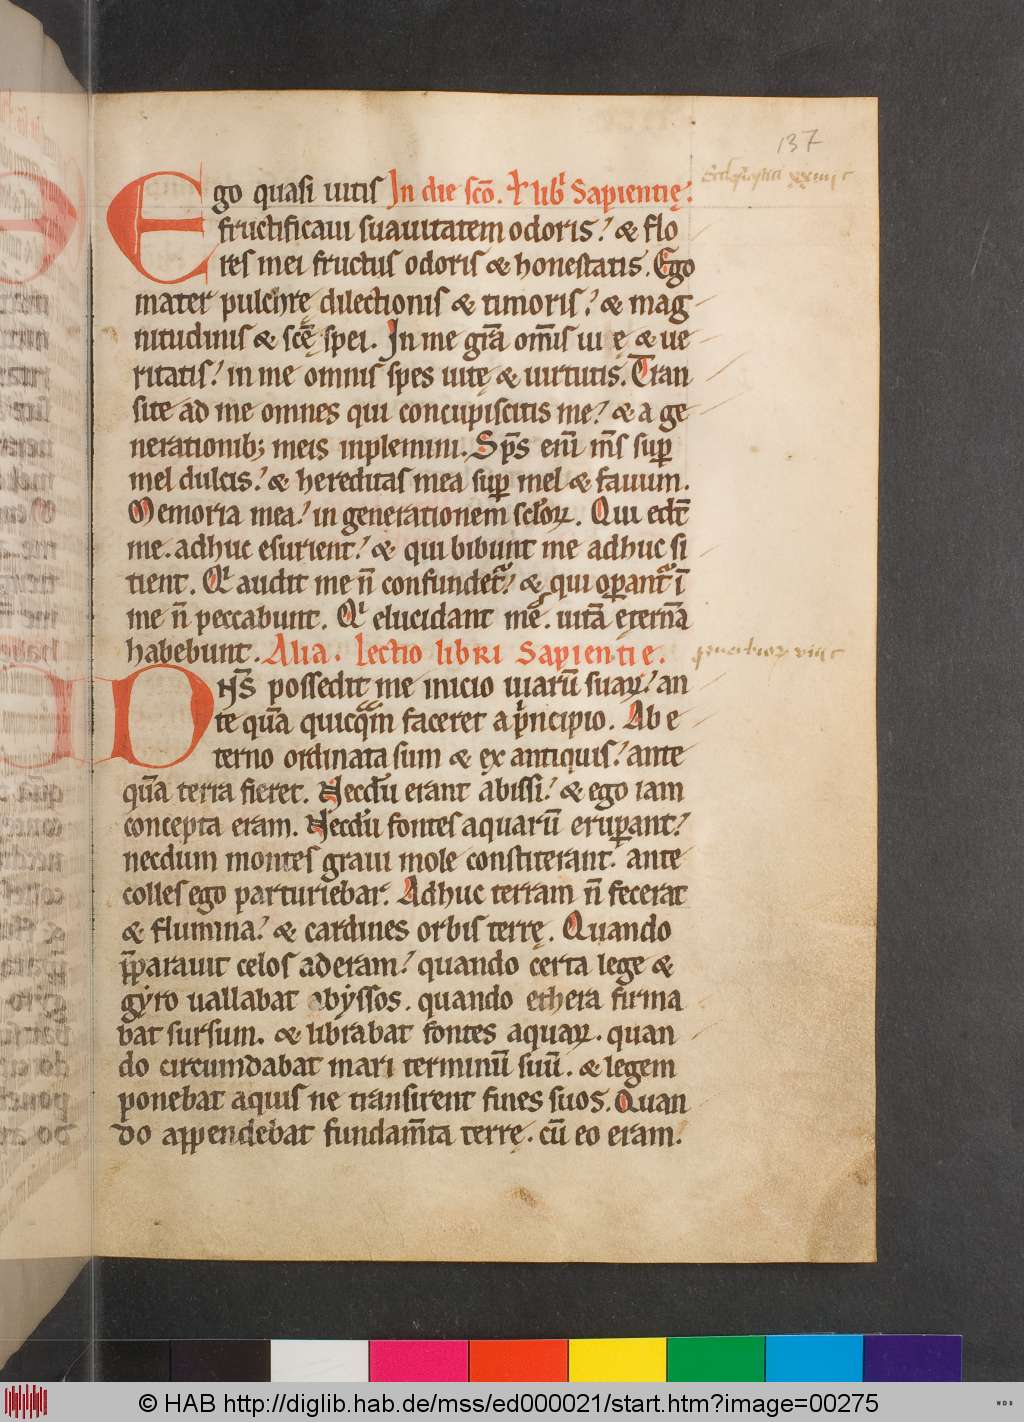 137
Ego quasi uitis In die sc̄o. ł lib' Sapientię.
Ecclesiastici xxiiij c
fructificaui suauitatem odoris! & flo
res mei fructus odoris & honestatis. Ego
mater pulchrę dilectionis & timoris! & mag
nitudinis & scę̄ spei. In me gr̄a om̄is uię & ue
ritatis! in me omnis spes uitę & uirtutis. Tran
site ad me omnes qui concupiscitis me! & a ge
nerationib; meis inplemini. Sp̄s enī m̄s sup̱
mel dulcis! & hereditas mea sup̱ mel & fauum.
Memoria mea! in generationem sclōꝝ. Qui edt̄
me. adhuc esurient! & qui bibunt me adhuc si
tient. Qi audit me n̄ confundet᷑! & qui oꝑant᷑ ī
me n̄ peccabunt. Qi elucidant mē. uitā eternā
habebunt. Alia. lectio libri Sapientie.
prouerbiorꝝ viij c
Dn̄s possedit me inicio uiarū suaꝝ! an
te quā quicq̄m faceret a pⁱncipio. Ab e
terno ordinata sum & ex antiquis! ante
quā terra fieret. Necdū erant abissi! & ego iam
concepta eram. Necdū fontes aquarū eruꝑant!
necdum montes graui mole constiterant. ante
colles ego parturiebar. Adhuc terram n̄ fecerat
& flumina! & cardines orbis terrę. Quando
p̄parauit celos aderam! quando certa lege &
gẏro uallabat abẏssos. quando ethera firma
bat sursum. & librabat fontes aquaꝝ. quan
do circumdabat mari terminū suū. & legem
ponebat aquis ne transirent fines suos. Quan
do appendebat fundam̄ta terrę. cū eo eram.
© HAB http://diglib.hab.de/mss/ed000021/start.htm?image=00275